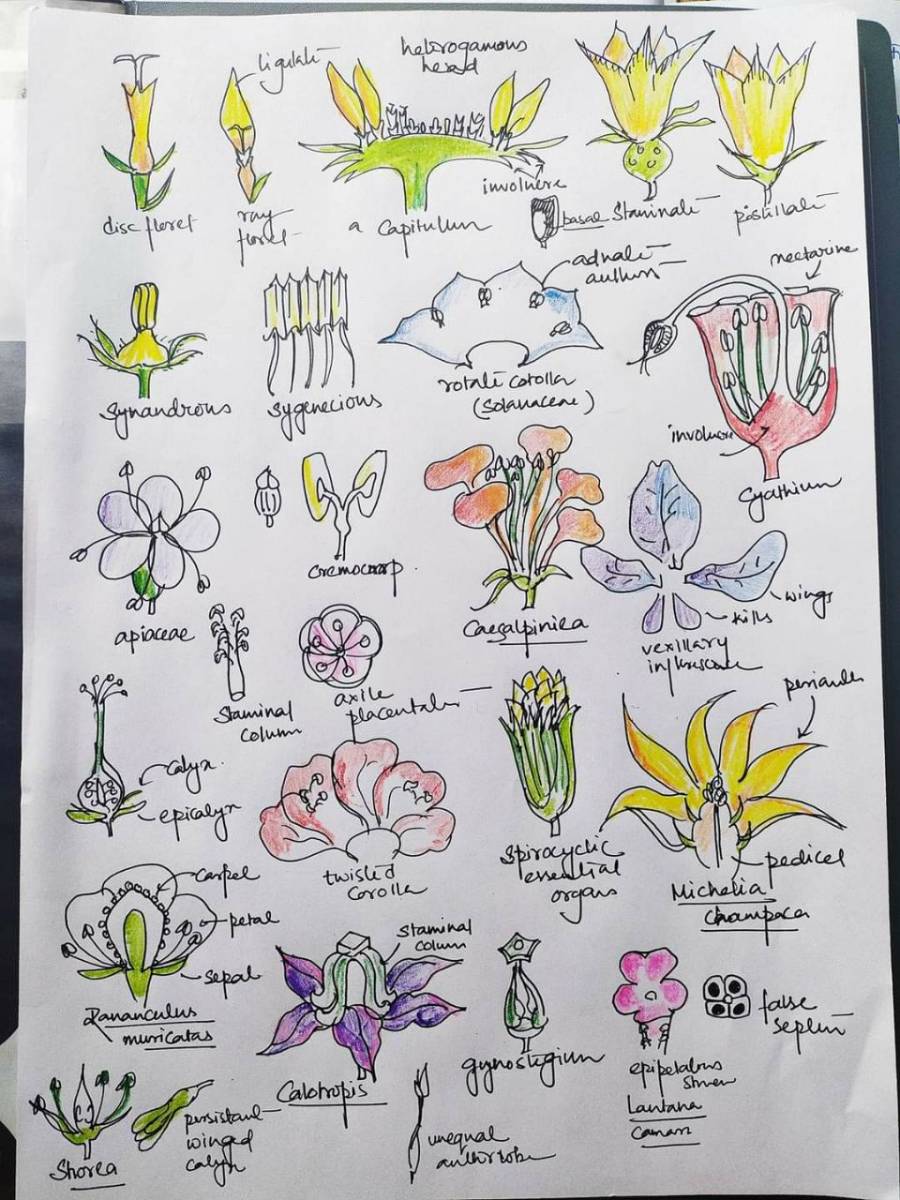 ligulate
heterogamous
head
involucre
disc floret
ray
floret
a capitulum
basal
staminate
pistillate
adnate
anthers
nectarine
synandrous
sygenecious
rotate corolla
(Solanaceae)
involucre
cyathium
cremocarp
apiaceae
Caesalpiniea
wings
kills
vexillary
staminal
column
axile
placentales
perianth
calyx
epicalyx
twisted
corolla
spirocyclic
essential
organs
pedicel
Michelia
champaca
carpel
petal
sepal
Rananculus
muricatas
staminal
column
Calotropis
gynostegium
false
septum
epipetalous
Lantana
camara
Shorea
persistant
winged
calyx
unequal
anther lobe